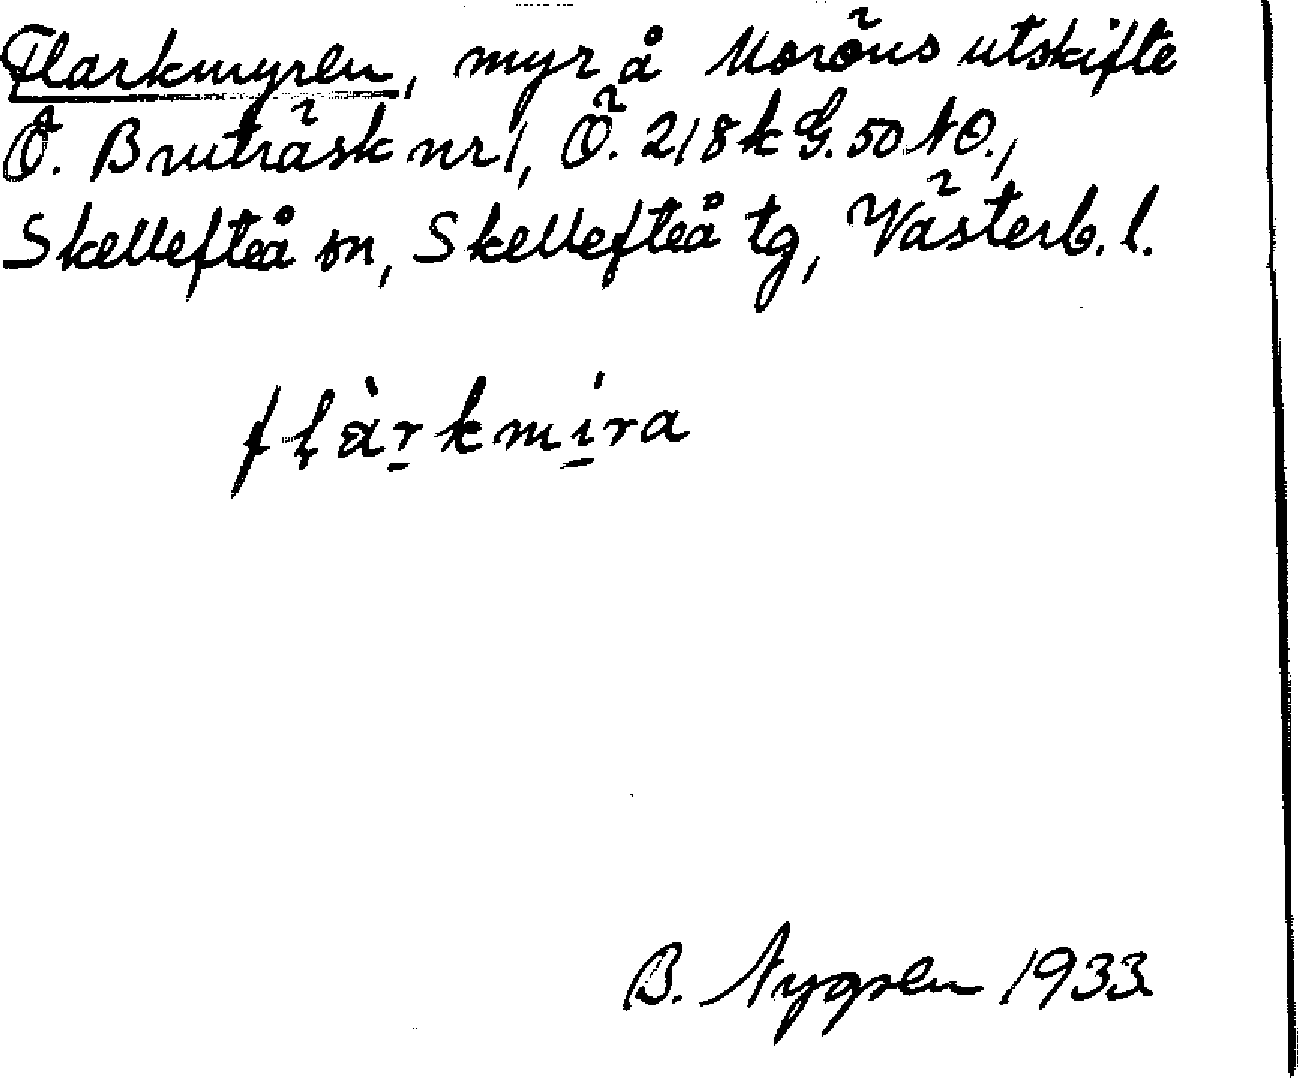 Flarkmyren, myr å Moröns utskifte
Ö. Bruträsk nr 1, Ö. 218 k G. 50 NO.,
Skellefteå sn, Skellefteå tg, Västerb. l.
fḷàr̲kmí̲ra
B. Nygren 1933.